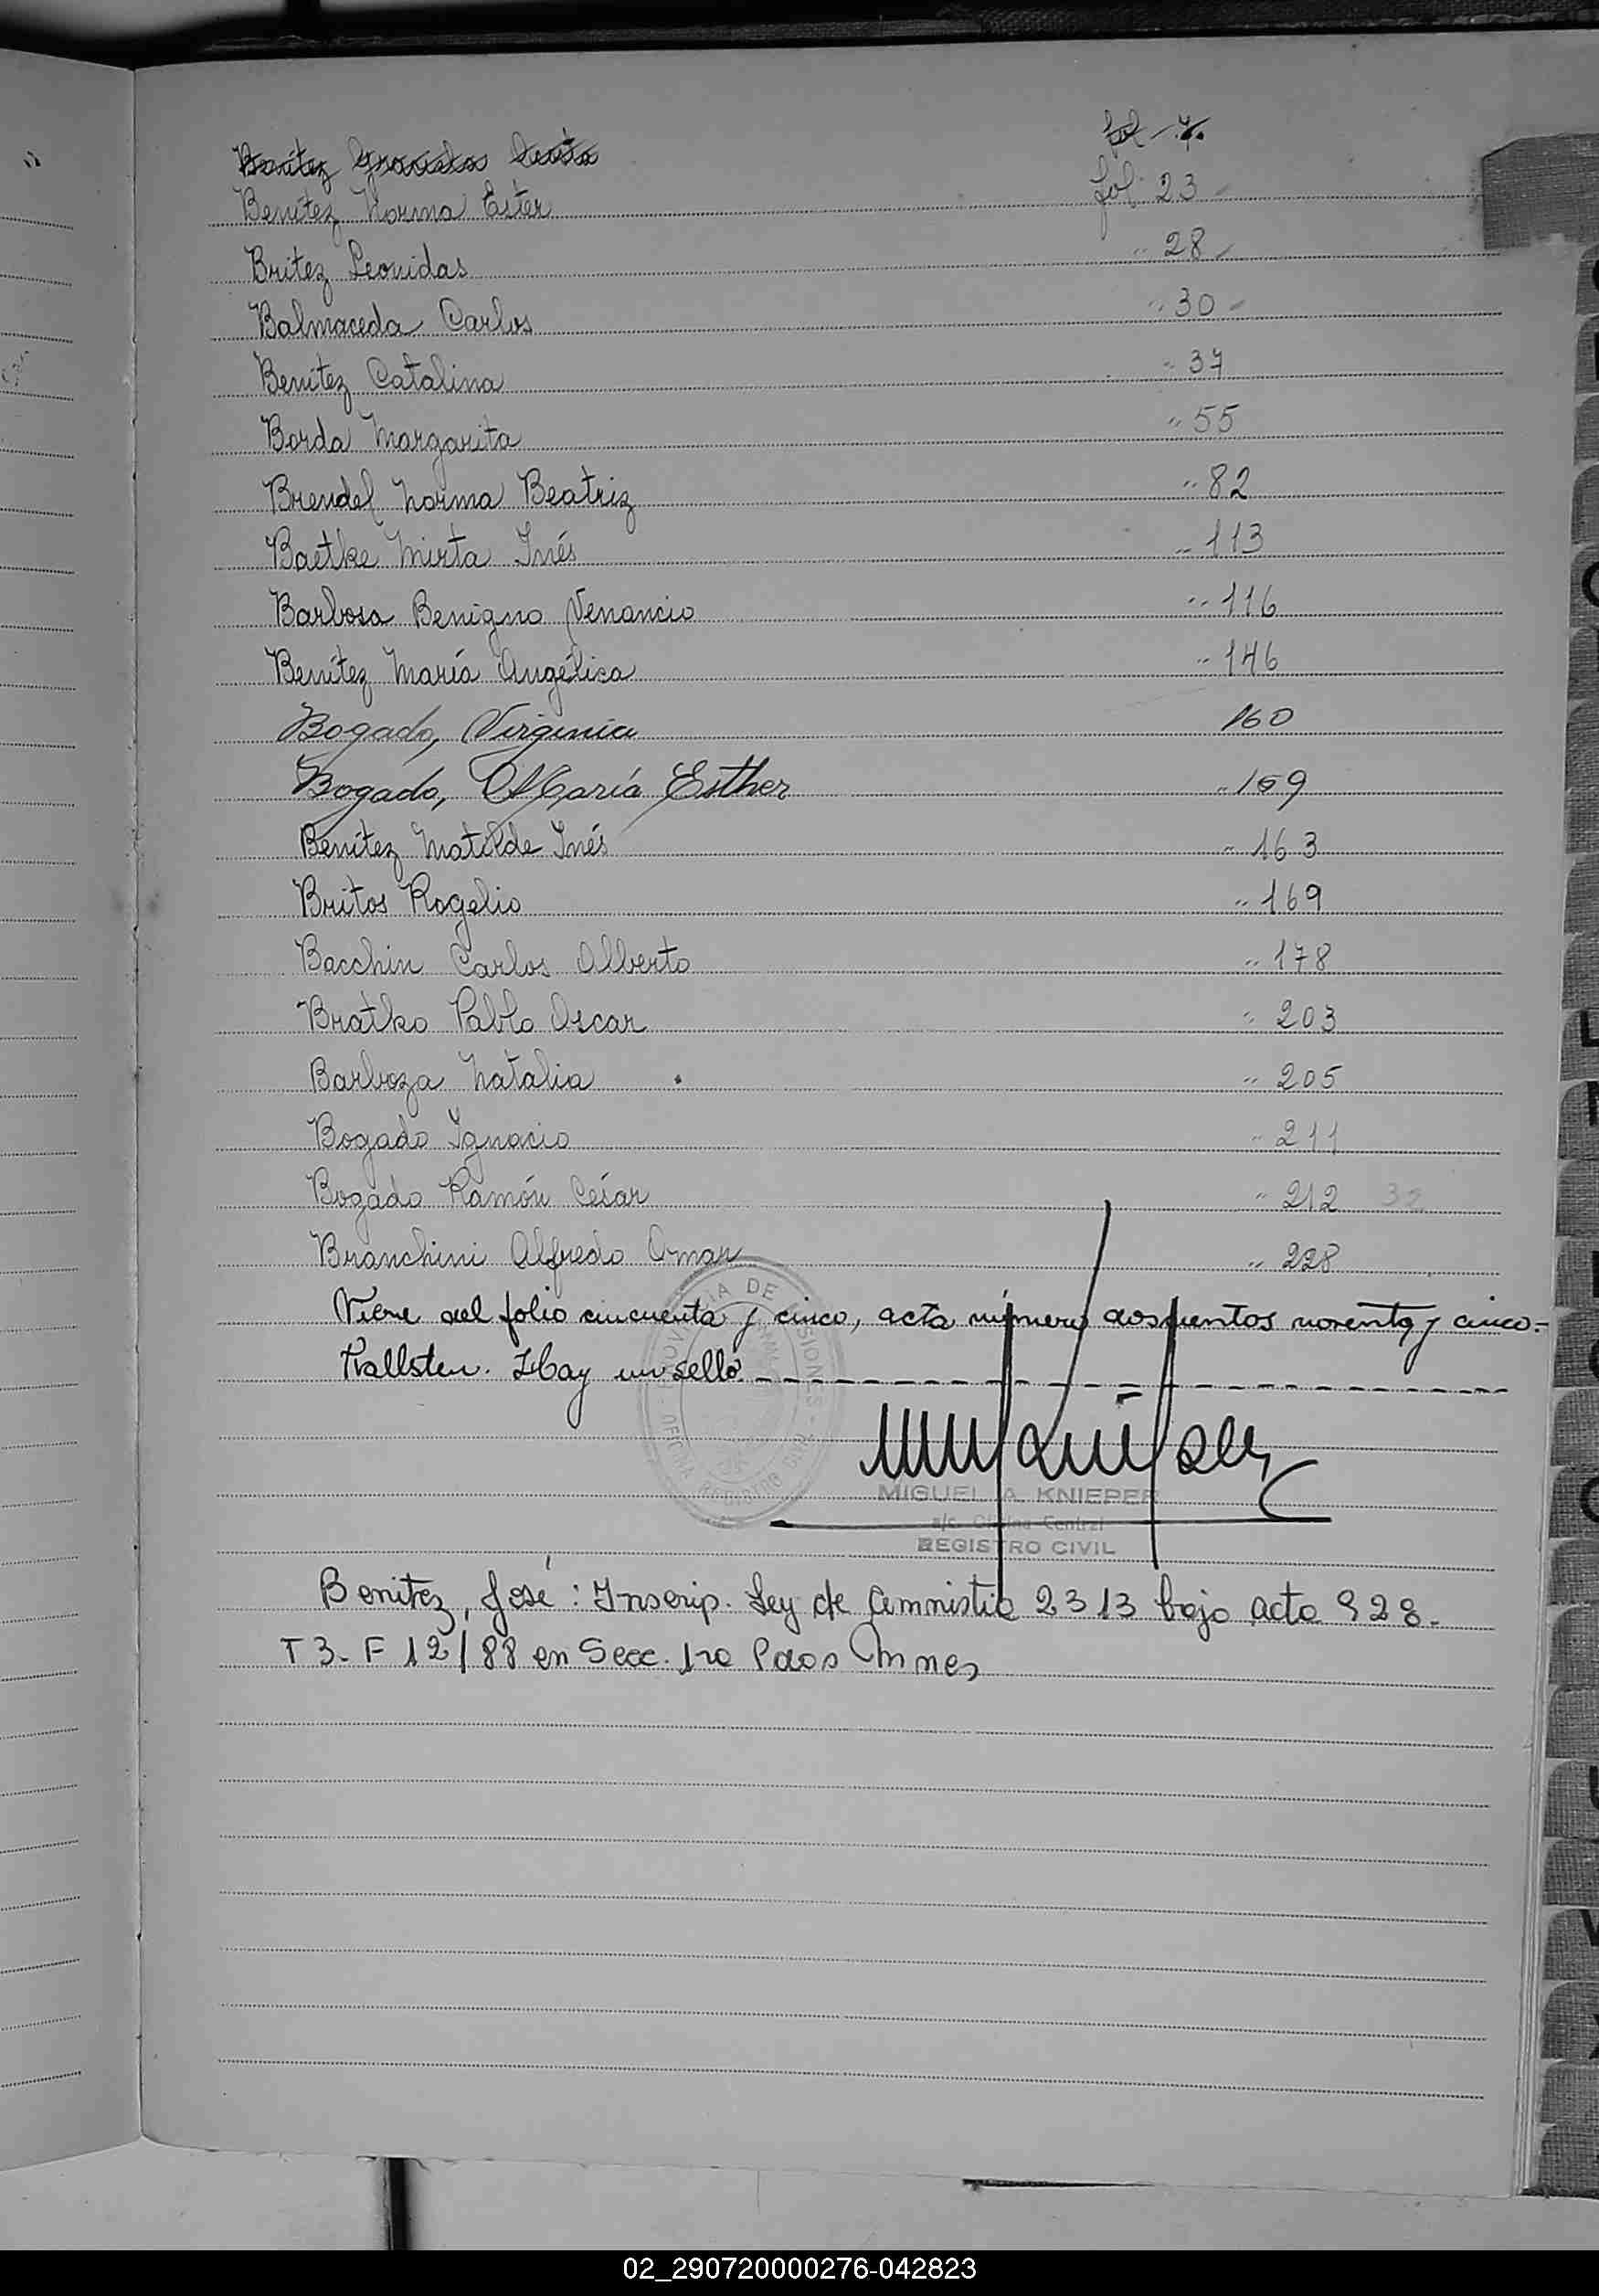 Benítez Graciela fol 7.
Benítez Norma Ester fol. 23
Britez Leonidas " 28
Balmaceda Carlos " 30
Benítez Catalina " 37
Borda Margarita " 55
Brendel Norma Beatriz " 82
Baetke Mirta Inés " 113
Barbosa Benigno Venancio " 116
Benítez María Angélica " 146
Bogado, Virginia 160
Bogado, María Esther " 109
Benítez Matilde Inés " 163
Britos Rogelio " 169
Bacchin Carlos Alberto " 178
Bratko Pablo Oscar " 203
Barboza Natalia " 205
Bogado Ignacio " 211
Bogado Ramón César " 212 32
Branchini Alfredo Omar " 228
Viene del folio cincuenta y cinco, acta número doscientos noventa y cinco.-
Kallsten. Hay un sello.
PROVINCIA DE MISIONES - OFICINA REGISTRO CIVIL
MIGUEL A. KNIEPER
a/c. Oficina Central
REGISTRO CIVIL
Benitez, José: Inscrip. Ley de Amnistia 2313 bajo acta 928.
T 3- F 12/88 en Secc. 1ra Pdas Mnes
L
02_290720000276-042823